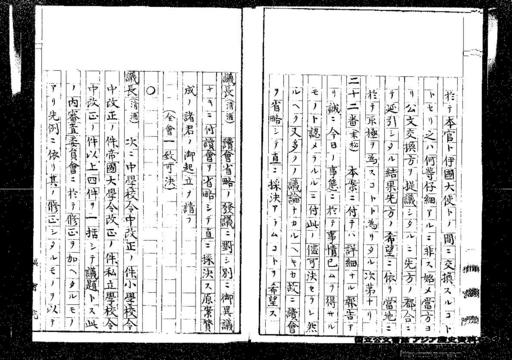 於テ本官ト伊國大使トノ間ニ交換スルコト
トセリ之ハ何等仔細アルニ非ス始メ當方ヨ
リ公文交換方ヲ提議シタルニ先方ノ都合ニ
テ延引シタル結果先方ノ希望ニ依リ當地ニ
於テ承極ヲ爲スコトト為リタル次第ナリ
二十二番 本案ニ付テハ詳細ナル報告ア
リ誠ニ今日ノ事態ニ於テ事情已ムヲ得サル
モノト認メラルルニ付此ノ儘可決セラレ然
ルヘク又多クノ議論ナカルヘキカ故ニ讀會
ヲ省略シテ直ニ採決アラムコトヲ希望ス
議長 讀會省略ノ發議ニ對シ別ニ御異議
ナキニ付讀會ヲ省略シテ直ニ採決ス原案贊
成ノ諸君ノ御起立ヲ請フ
(全會一致可決)
〇
議長 次ニ中學校令中改正ノ件小學校令
中改正ノ件帝國大學令改正ノ件私立學校令
中改正ノ件以上四件ヲ一括シテ議題トス此
ノ内審査委員會ニ於テ修正ヲ加ヘタルモノ
アリ先例ニ依リ其ノ修正シタルモノヲ以テ